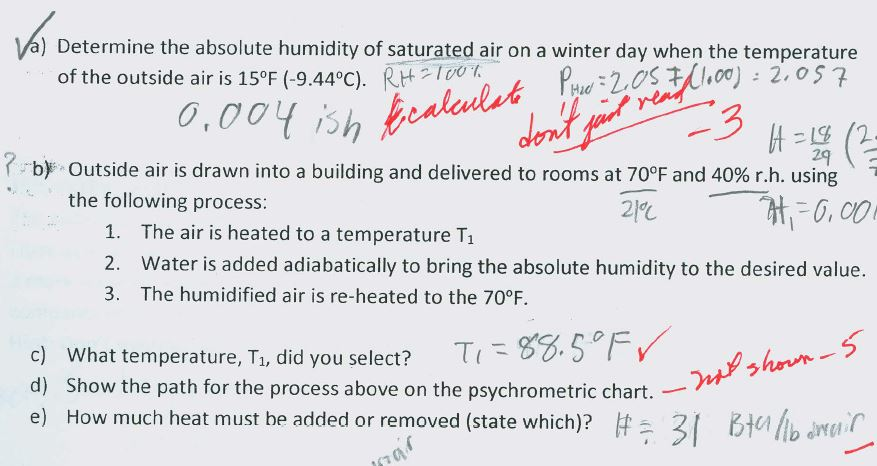 a) Determine the absolute humidity of saturated air on a winter day when the temperature
of the outside air is 15°F (-9.44°C). RH = 100% P H₂O = 2.057 (1.00) = 2.057
0.004 ish calculate don't just read -3 H = 18/29 (2.
? b) Outside air is drawn into a building and delivered to rooms at 70°F and 40% r.h. using
the following process: 21°C H₁ = 0.00
1. The air is heated to a temperature T₁
2. Water is added adiabatically to bring the absolute humidity to the desired value.
3. The humidified air is re-heated to the 70°F.
c) What temperature, T₁, did you select? T₁ = 88.5°F ✓
d) Show the path for the process above on the psychrometric chart. — not shown -5
e) How much heat must be added or removed (state which)? H = 31 Btu/lb air
air